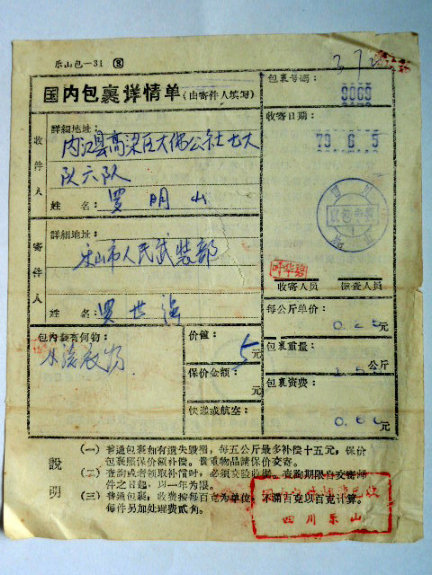 乐山包—31 ⑧
国内包裹详情单(由寄件人填写)
包裹号码:
0069
收件人
詳細地址:
内江县高梁区大偶公社七大
队六队
姓 名: 罗明山
收寄日期:
79 6 5
寄件人
詳細地址:
乐山市人民武装部
姓 名: 罗世
叶华碧
收寄人员
检查人员
包內裝有何物:
水
衣物
价值:
5元
保价金額:
元
快递或航空:
每公斤单价:
0.25元
包裹重量:
公斤
包裹資費:
元
説明
(一)普通包裹如有遺失毀損,每五公斤最多补偿十五元,保价
包裹照保价额补偿。貴重物品請保价交寄。
(二)查詢或者領取补偿时,必須交驗收据。查詢期限自交寄每
件之日起,以一年为限。
(三)普通包裹,收費按每百克为单位,不滿百克以百克計算。
每件另加处理費貳角。
四川乐山